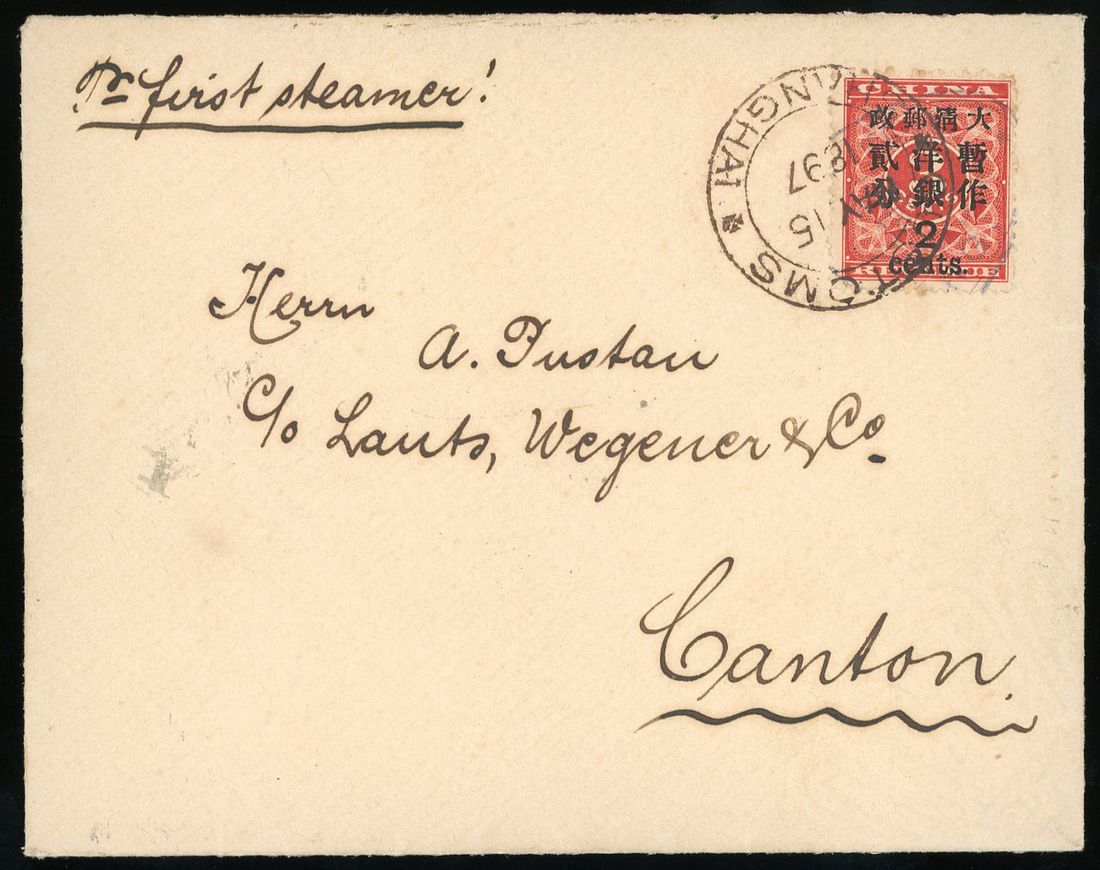 Pr first steamer!
CHINA
大清郵政
暫作
洋銀
貳分
2
cents.
TOMS
NGHAI
15
97
Herrn
A. Pustau
C/o Lauts, Wegener & Co.
Canton.